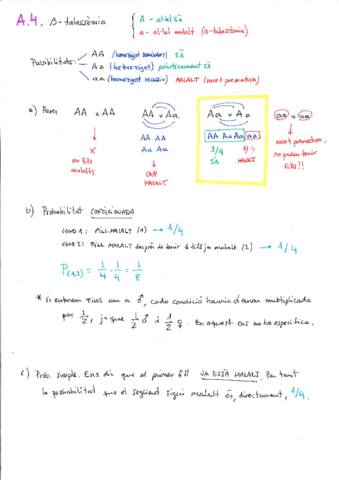 A.4. β-talassèmia
A - al·lel sà
a - al·lel malalt (β-talassèmia)
Possibilitats:
AA (homozigot dominant) SÀ
Aa (heterozigot) pràcticament sà
aa (homozigot recessiu) MALALT (mort prematura)
a) Pares: AA x AA
AA x Aa
Aa x Aa
aa x aa
X
no fills
malalts
AA AA
Aa Aa
CAP
MALALT
AA Aa Aa aa
3/4 1/4
SÀ MALALT
mort prematura,
no poden tenir
fills!!
b) Probabilitat CONDICIONADA
COND 1: FILL MALALT (1) → 1/4
COND 2: FILL MALALT després de tenir 1 fill ja malalt (2) → 1/4
P(1,2) = 1/4 · 1/4 = 1/8
* Si entenem fills com a ♂, cada condició hauria d'anar multiplicada
per 1/2, ja que 1/2 ♂ i 1/2 ♀. En aquest cas no ho especifica.
c) Prob. simple. Ens diu que el primer fill JA ESTÀ MALALT. Per tant
la probabilitat que el següent sigui malalt és, directament, 1/4.